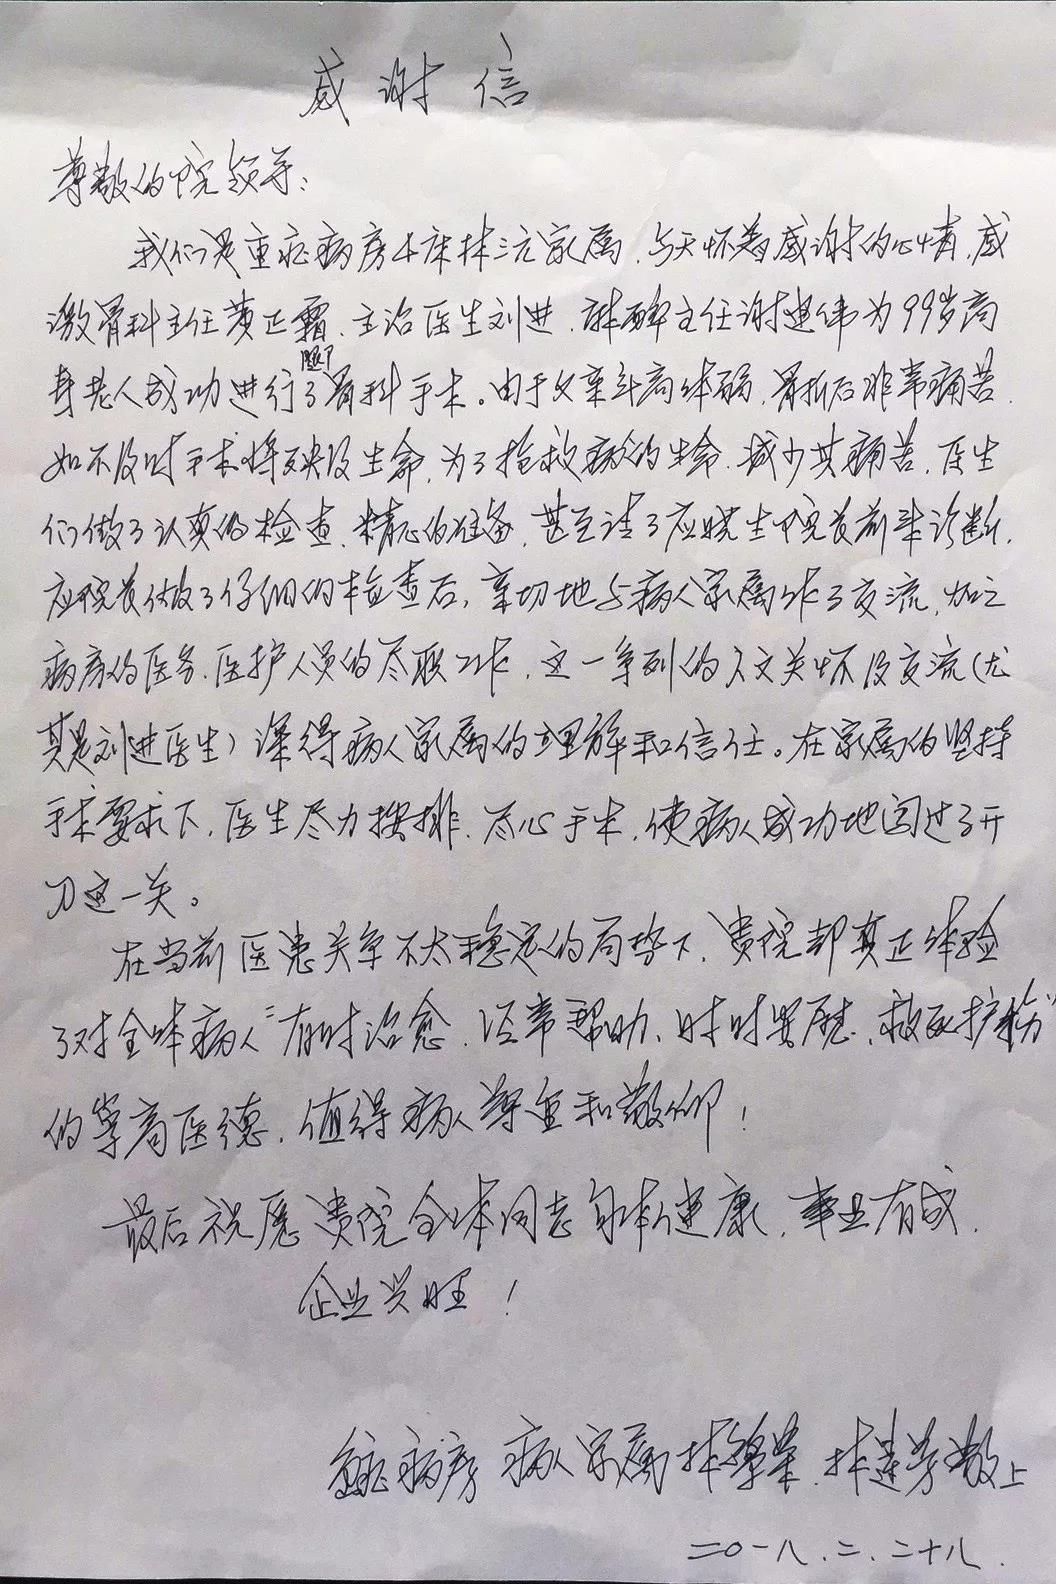 感谢信
尊敬的院领导:
我们是重症病房4床林三元家属,今天怀着感谢的心情,感
激骨科主任黄正霜、主治医生刘进、麻醉主任谢建伟为99岁高
腿了
身老人成功进行了骨科手术。由于父亲年高体弱,骨折后非常痛苦.
如不及时手术将殃及生命,为了抢救病人的生命.减少其痛苦,医生
们做了认真的检查、精心的准备,甚至请了应晓生院长前来诊断,
应院长做了仔细的检查后,亲切地与病人家属作了交流,加之
病房的医务.医护人员的尽职工作,这一系列的人文关怀及交流(尤
其是刘进医生)深得病人家属的理解和信任。在家属的坚持
手术要求下,医生尽力按排、尽心手术,使病人成功地闯过了开
刀这一关。
在当前医患关系不太稳定的局势下,贵院却真正体验
了对全体病人"有时治愈、经常帮助、时时安慰、救死扶伤"
的崇高医德,值得病人尊重和敬仰!
最后祝愿贵院全体同志身体健康,事业有成,
企业兴旺!
重症病房 病人家属林 林 敬上
二〇一八.二.二十八.